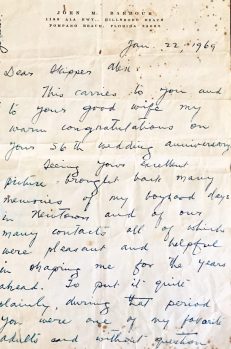 JOHN M. BARBOUR
1169 A1A HWY., HILLSBORO BEACH
POMPANO BEACH, FLORIDA
Jan. 22, 1969
Dear Skipper
This carries to you and
to your good wife my
warm congratulations on
your 56th wedding anniversary.
Seeing your excellent
picture brought back many
memories of my boyhood days
in Newtown and of our
many contacts all of which
were pleasant and helpful
in shaping me for the years
ahead. To put it quite
plainly, during that period
you were one of my favorite
adults and without question